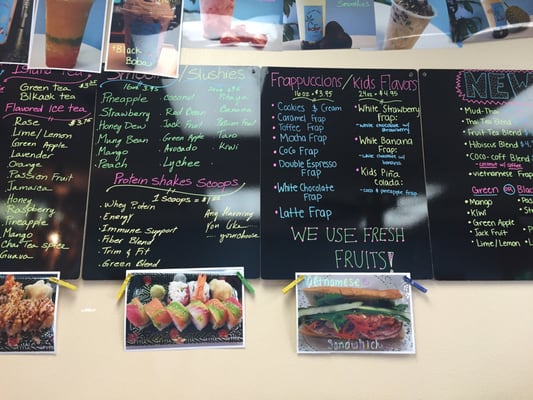 Smoothies
Black
Boboy
Island Tea
Green Tea
Polkadk Tea
Flavored Ice tea
Rose $3.75
Lime/Lemon
Green Apple
Lavender
Orange
Passion Fruit
Jamaica
Honey
Raspberry
Pineapple
Mango
Guava
Slushies
Pineapple
Strawberry
Honey Dew
Mung Bean
Mango
Peach
Coconut
Red Bean
Jack Fruit
Green Apple
Avocado
Lychee
Pitaya
Banana
Passion Fruit
Taro
Kiwi
Protein Shakes Scoops
Whey Protein
Energy
Immune Support
Fiber Blend
Trim & Fit
Green Blend
Frappuccions/Kids Flavas
16oz $3.95
24oz $4.95
Cookies & Cream
Caramel Frap
Toffee Frap
Mocha Frap
CoCo Frap
Double Espresso
Frap
White Chocolate
Frap
Latte Frap
White Strawberry
Frap:
White chocolate w/
strawberry
White Banana
Frap:
White chocolate w/
bananas
Kids Piña
Colada:
Coco & pineapple frap
WE USE FRESH
FRUITS!
NEW
Mud-Thai
Thai Tea Blend
Fruit Tea Blend
Hibiscus Blend
Coco-coff Blend
coconut w/ coffee
Vietnamese Frap
Green or Black
Mango
Kiwi
Green Apple
Jack Fruit
Lime/Lemon
Vietnamese
Sandwhich